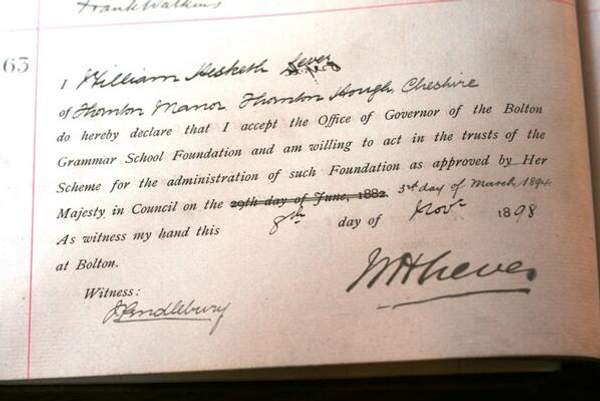 Frank Watkins
63
I William Hesketh Lever
of Thornton Manor Thornton Hough Cheshire
do hereby declare that I accept the Office of Governor of the Bolton
Grammar School Foundation and am willing to act in the trusts of the
Scheme for the administration of such Foundation as approved by Her
Majesty in Council on the 29th day of June, 1882. 3rd day of March 1894
As witness my hand this 8th day of Novr 1898
at Bolton.
WHLever
Witness:
Pendlebury